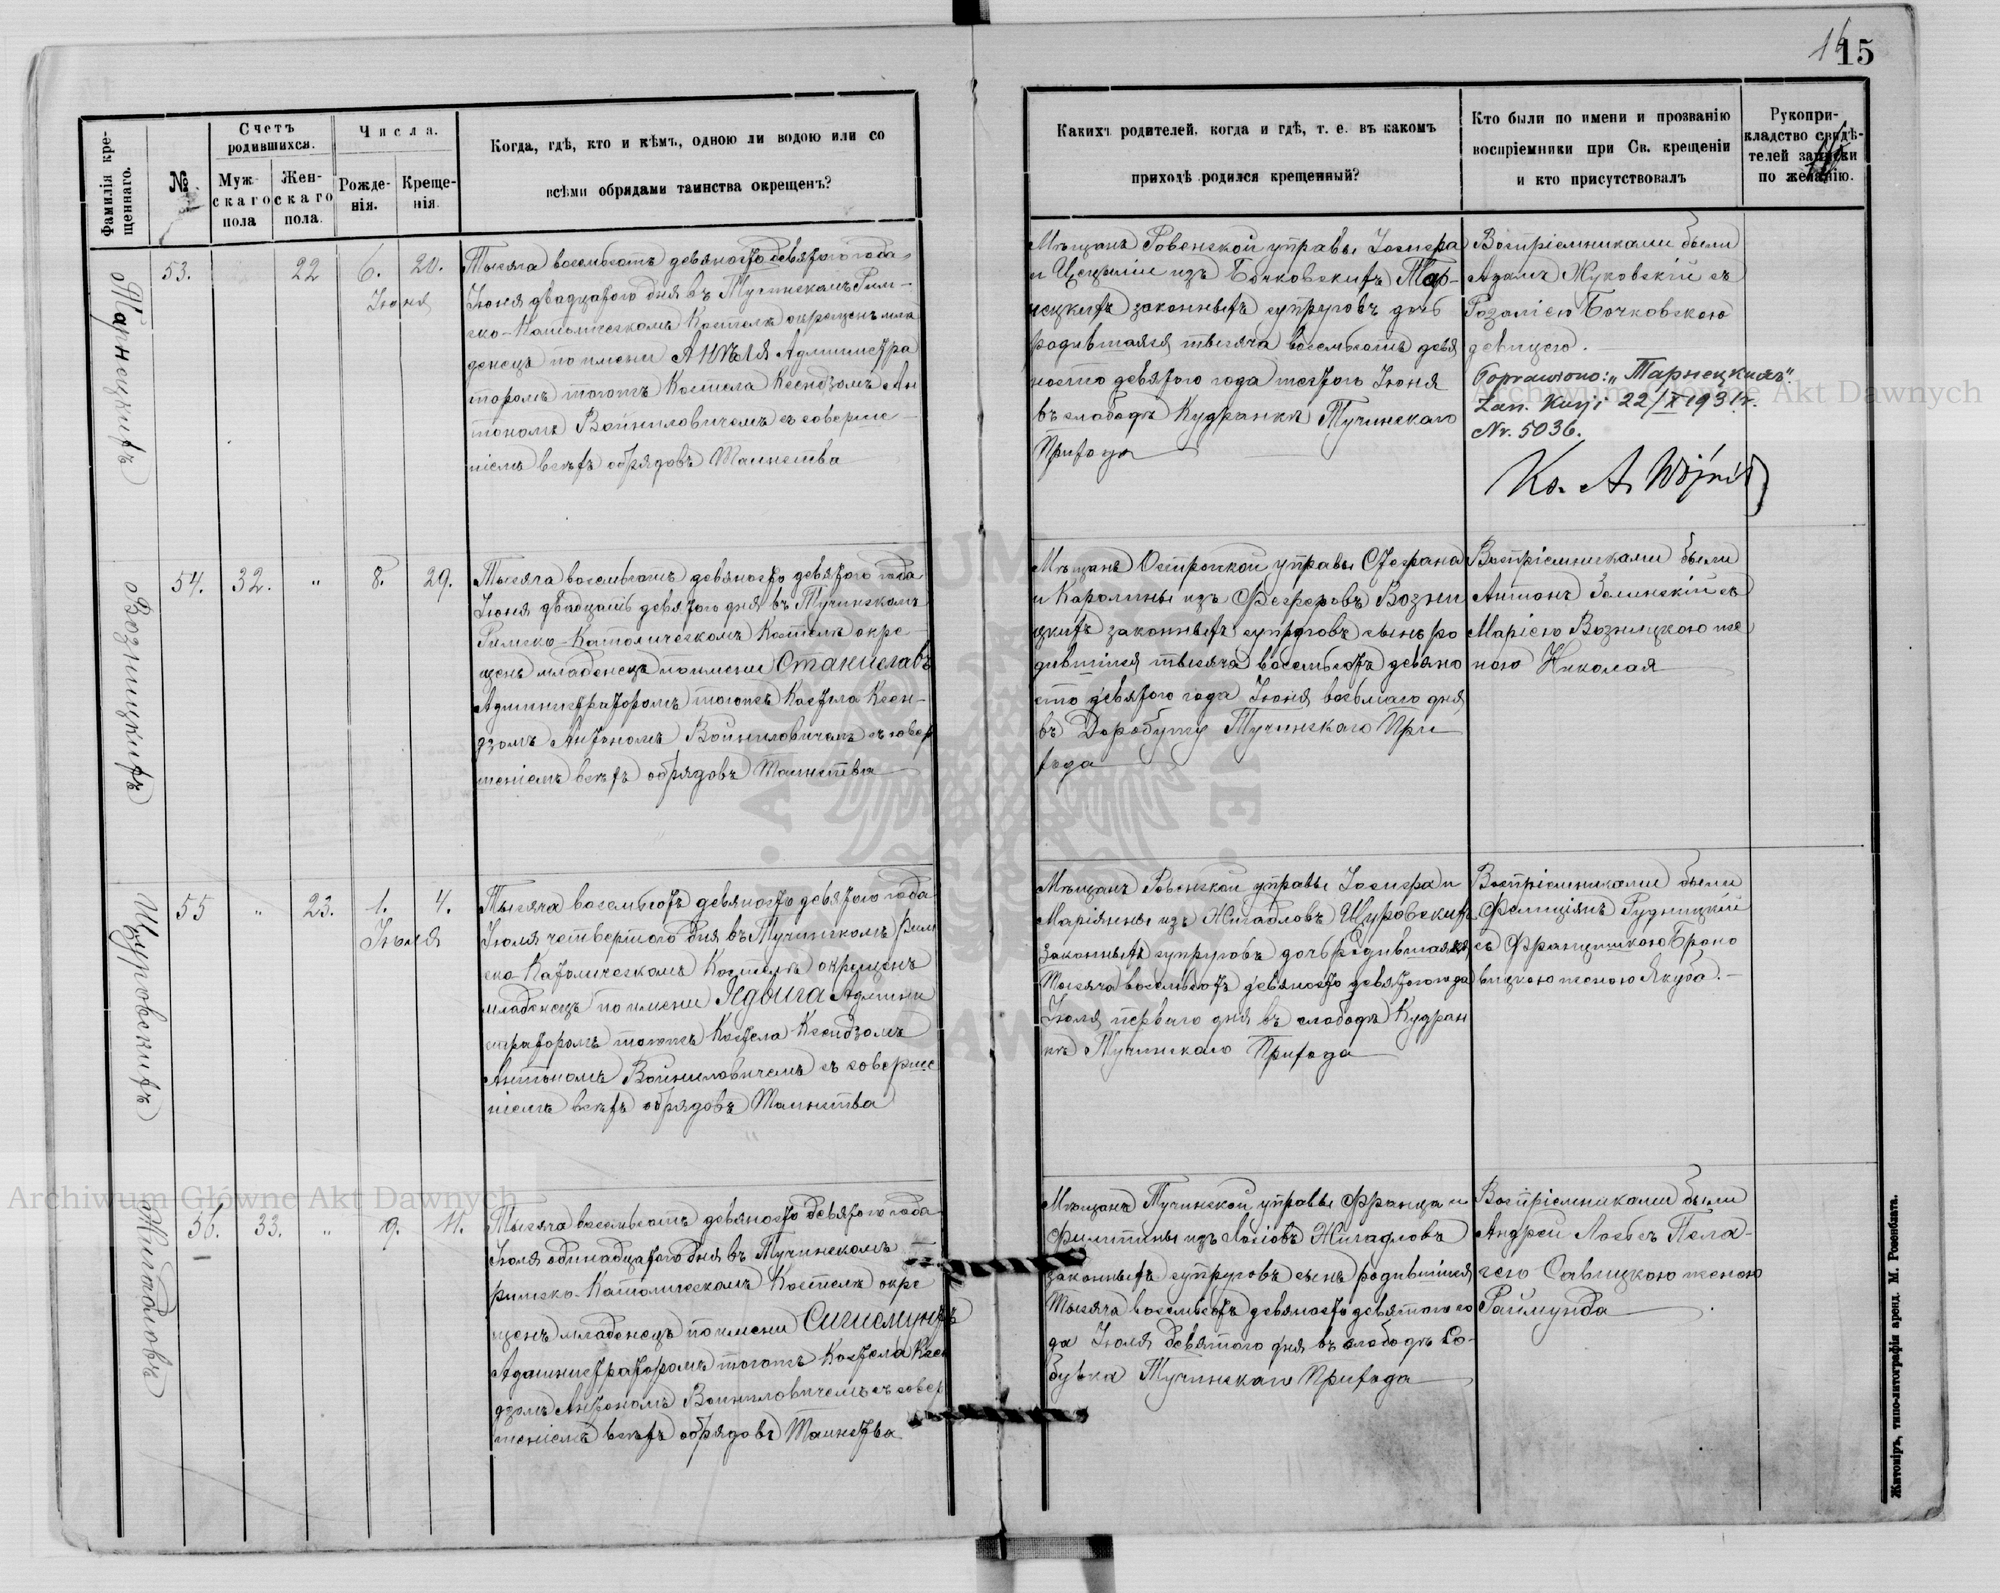 15
Фамилія кре-
щеннаго.
№
Счетъ
родившихся.
Муж-
скаго
пола
Жен-
скаго
пола.
Числа.
Рожде-
нія.
Креще-
нія.
Когда, гдѣ, кто и кѣмъ, одною ли водою или со
всѣми обрядами таинства окрещенъ?
Какихъ родителей, когда и гдѣ, т. е. въ какомъ
приходѣ родился крещенный?
Кто были по имени и прозванію
воспріемники при Св. крещеніи
и кто присутствовалъ
Рукопри-
кладство свидѣ-
телей записки
по желанію.
Тарнецкихъ
53.
22
6.
20.
Іюня
Тысяча восемьсотъ девяносто девятого года
Іюня двадцатого дня въ Тучинскомъ Рим-
ско-Католическомъ Костелѣ окрещенъ мла
денецъ по имени Анѣля Администра
торомъ тогожъ Костела Ксендзомъ Ан
тономъ Войниловичемъ съ соверше
ніемъ всѣхъ обрядовъ Таинства
Мѣщанъ Ровенской управы Іосифа
и Цециліи изъ Бочковскихъ Тар-
нецкихъ законныхъ супруговъ дочь
родившаяся тысяча восемьсотъ девя
носто девятого года шестого Іюня
въ слободѣ Кудранкѣ Тучинского
Прихода
Воспріемниками были
Адамъ Жуковскій съ
Розаліею Бочковскою
девицею.
Poprawiono: „Тарнецкихъ".
Zan. Kurji 22/X 1931 r.
Nr. 5036.
Ks. A. Wójnic
Возницкихъ
54.
32.
"
8.
29.
Тысяча восемьсотъ девяносто девятого года
Іюня двадцать девятого дня въ Тучинскомъ
Римско-Католическомъ Костелѣ окре-
щенъ младенецъ по имени Станиславъ
Администраторомъ тогожъ Костела Ксен-
дзомъ Антономъ Войниловичемъ съ совер
шеніемъ всѣхъ обрядовъ Таинства
Мѣщанъ Острожской управы Стефана
и Каролины изъ Возни
цкихъ законныхъ супруговъ сынъ ро
дившійся тысяча восемьсотъ девяно
сто девятого года Іюня восьмаго дня
въ Доробужу Тучинского При
хода
Воспріемниками были
Антонъ Зелинскій съ
Маріею Возницкою же
ною Николая
Щуровскихъ
55
"
23.
1.
4.
Іюля
Тысяча восемьсотъ девяносто девятого года
Іюля четвертого дня въ Тучинскомъ Рим
ско-Католическомъ Костелѣ окрещенъ
младенецъ по имени Ядвига Админи
страторомъ тогожъ Костела Ксендзомъ
Антономъ Войниловичемъ съ соверше
ніемъ всѣхъ обрядовъ Таинства
Мѣщанъ Ровенской управы Іосифа и
Маріянны изъ Жигадловъ Щуровскихъ
законныхъ супруговъ дочь родившаяся
тысяча восемьсотъ девяносто девятого года
Іюля перваго дня въ слободѣ Кудран
кѣ Тучинскаго Прихода
Воспріемниками были
Фелиціянъ Рудницкій
съ Францишкою Броно
вицкою женою Якуба.
Жигадловъ
56.
33.
"
9.
11.
Тысяча восемьсотъ девяносто девятого года
Іюля одинадцатого дня въ Тучинскомъ
Римско-Католическомъ Костелѣ окре
щенъ младенецъ по имени Сигисмундъ
Администраторомъ тогожъ Костела Ксен
дзомъ Антономъ Войниловичемъ съ совер
шеніемъ всѣхъ обрядовъ Таинства
Мѣщанъ Тучинской управы Франца и
изъ Жигадловъ
законныхъ супруговъ сынъ родившійся
тысяча восемьсотъ девяносто девятого го
да Іюля девятого дня въ слободѣ
Тучинскаго Прихода
Воспріемниками были
Андрей съ Пела-
гею Савицкою женою
Раймунда
Житоміръ, типо-литографія аренд. М. Розенблата.
Archiwum Główne Akt Dawnych
Archiwum Główne Akt Dawnych